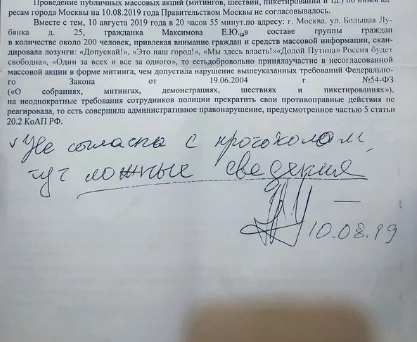 Проведение публичных массовых акций (митингов, шествий, пикетирований и т.д.) по иным ад-
ресам города Москвы на 10.08.2019 года Правительством Москвы не согласовывалось.
Вместе с тем, 10 августа 2019 года в 20 часов 55 минут.по адресу: г. Москва, ул. Большая Лу-
бянка д. 25, гражданка Максимова Е.Ю. в составе группы граждан
в количестве около 200 человек, привлекая внимание граждан и средств массовой информации, скан-
дировала лозунги: «Допуской!», «Это наш город!», «Мы здесь власть!»«Долой Путина» Россия будет
свободна», «Один за всех и все за одного», то естьдобровольно принялаучастие в несогласованной
массовой акции в форме митинга, чем допустила нарушение вышеуказанных требований Федерально-
го Закона от 19.06.2004 г. №54-ФЗ
(«О собраниях, митингах, демонстрациях, шествиях и пикетированиях»),
на неоднократные требования сотрудников полиции прекратить свои противоправные действия не
реагировала, то есть совершила административное правонарушение, предусмотренное частью 5 статьи
20.2 КоАП РФ.
Не согласна с протоколом,
тут ложные сведения
10.08.19